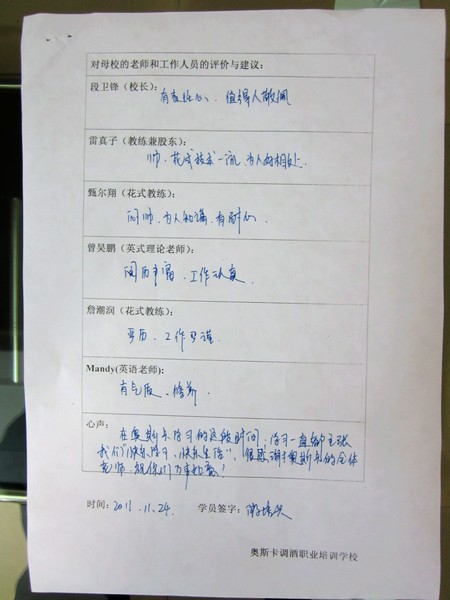 对母校的老师和工作人员的评价与建议:
段卫锋（校长）:
有责任心、值得人敬佩
雷真子（教练兼股东）:
帅、花式技术一流,为人好相处.
甄尔翔（花式教练）:
闷帅、为人和蔼,有耐心.
曾昊鹏（英式理论老师）:
阅历丰富、工作认真
詹潮润（花式教练）:
严厉、工作严谨
Mandy(英语老师):
有气质、修养
心声:
在奥斯卡学习的这段时间,学习一直都主张
我们“快乐学习、快乐生活”,很感谢奥斯卡的全体
老师,祝你们万事如意!
时间: 2011.11.24. 学员签字:
奥斯卡调酒职业培训学校